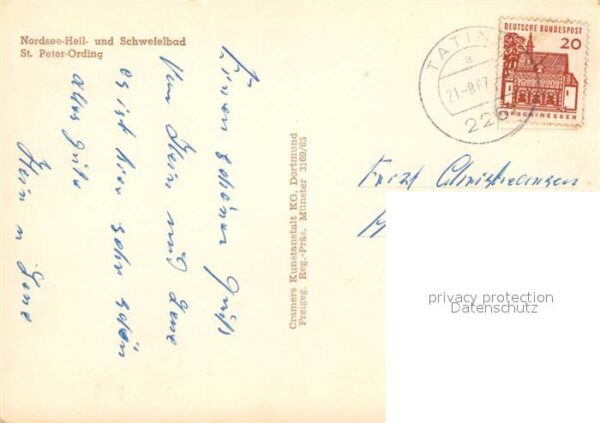 Nordsee-Heil- und Schwefelbad
St. Peter-Ording
Einen schönen Gruß
Von Hein und Lene
es ist hier sehr schön
alles gute
Hein u Lene
Cramers Kunstanstalt KG, Dortmund
Freigeg. Reg.-Präs. Münster 3169/65
TATIN
a
21.-8.67
22
DEUTSCHE BUNDESPOST
20
LORSCH/HESSEN
privacy protection
Datenschutz